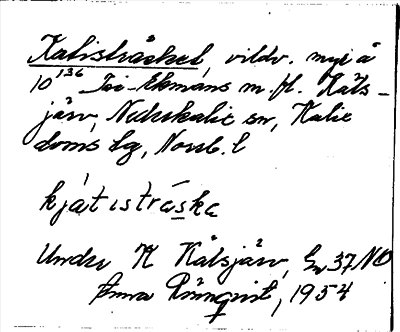 Kalisträsket, vildv. myr å
10¹³⁶ Isi-Ekmans m.fl. Kåts-
järv, Nederkalix sn, Kalix
doms lg, Norrb. l
kjátistráska
Under K Kåtsjärv, Gv 37 NO
Anna Rönnqvist, 1954